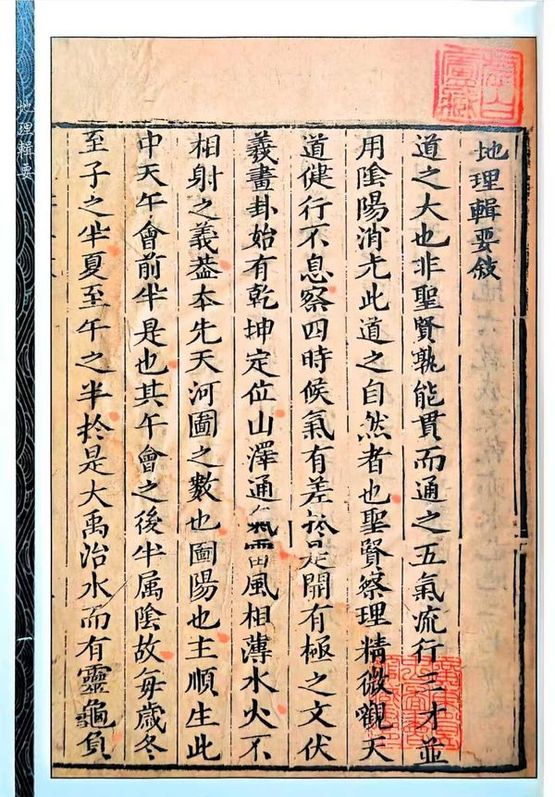 地理輯要敍
道之大也非聖賢孰能貫而通之五氣流行三才並
用陰陽消光此道之自然者也聖賢察理精微觀天
道健行不息察四時候氣有差於是開有極之文伏
羲畫卦始有乾坤定位山澤通氣雷風相薄水火不
相射之義葢本先天河圖之數也圖陽也主順生此
中天午會前半是也其午會之後半属陰故每歲冬
至子之半夏至午之半於是大禹治水而有靈龜負
地理輯要
一